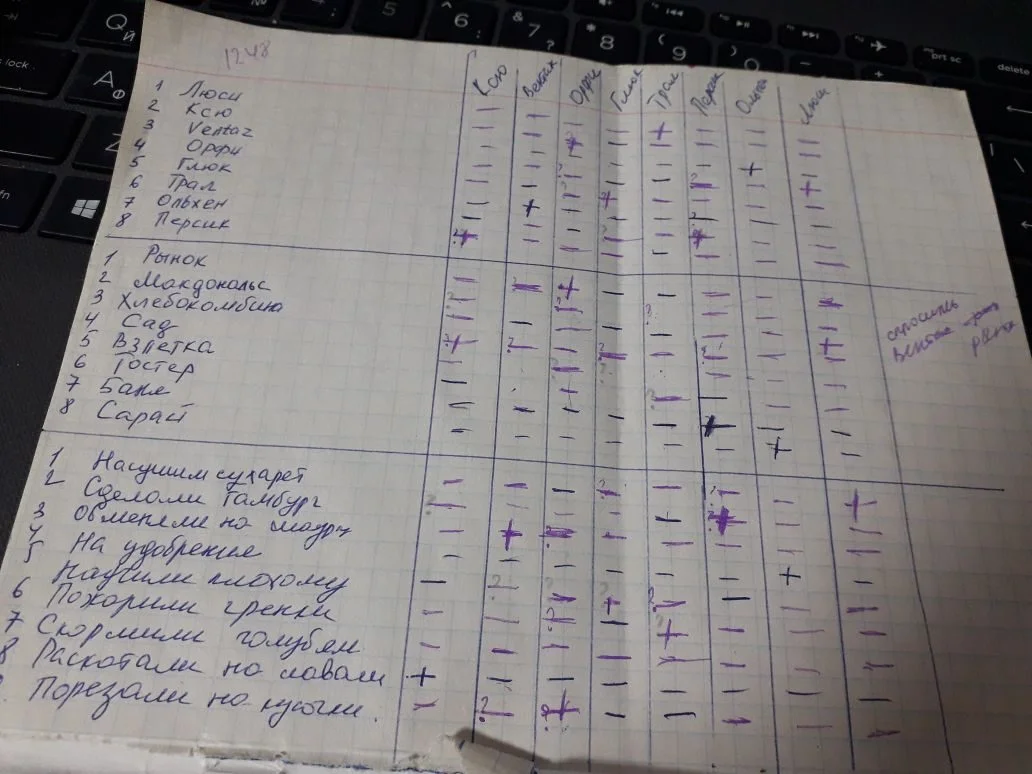 1248
Ксю Вентаз Орфи Глюк Трал Персик Ольхен Люси
1 Люси
2 Ксю
3 Ventaz
4 Орфи
5 Глюк
6 Трал
7 Ольхен
8 Персик
1 Рынок
2 Макдональс
3 Хлебокомбина
4 Сад
5 Взлетка
6 Тостер
7 Баня
8 Сарай
1 Насушим сухарей
2 Сделали гамбург
3 Обменяли на
4 На удобрение
5 Научили плохому
6 Пожарили гренки
7 Скормили голубям
8 Раскатали на лаваш
Порезали на кусочки.
рынок